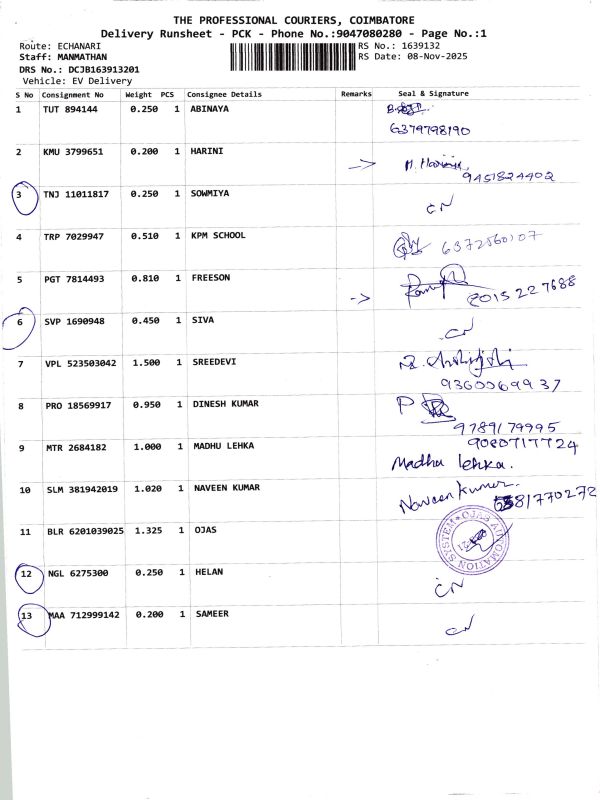 THE PROFESSIONAL COURIERS, COIMBATORE
Delivery Runsheet - PCK - Phone No.:9047080280 - Page No.:1
Route: ECHANARI RS No.: 1639132
Staff: MANMATHAN RS Date: 08-Nov-2025
DRS No.: DCJB163913201
Vehicle: EV Delivery
S No Consignment No Weight PCS Consignee Details Remarks Seal & Signature
1 TUT 894144 0.250 1 ABINAYA
6379798190
2 KMU 3799651 0.200 1 HARINI -> H. Harini
9451824402
3 TNJ 11011817 0.250 1 SOWMIYA CN
4 TRP 7029947 0.510 1 KPM SCHOOL
5 PGT 7814493 0.810 1 FREESON ->
6 SVP 1690948 0.450 1 SIVA CN
7 VPL 523503042 1.500 1 SREEDEVI
9360069937
8 PRO 18569917 0.950 1 DINESH KUMAR P
9789179995
9 MTR 2684182 1.000 1 MADHU LEHKA 9080717724
Madhu lehka.
10 SLM 381942019 1.020 1 NAVEEN KUMAR Naveen kumar.
11 BLR 6201039025 1.325 1 OJAS OJAS AUTOMATION SYSTEM
12 NGL 6275300 0.250 1 HELAN CN
13 MAA 712999142 0.200 1 SAMEER CN